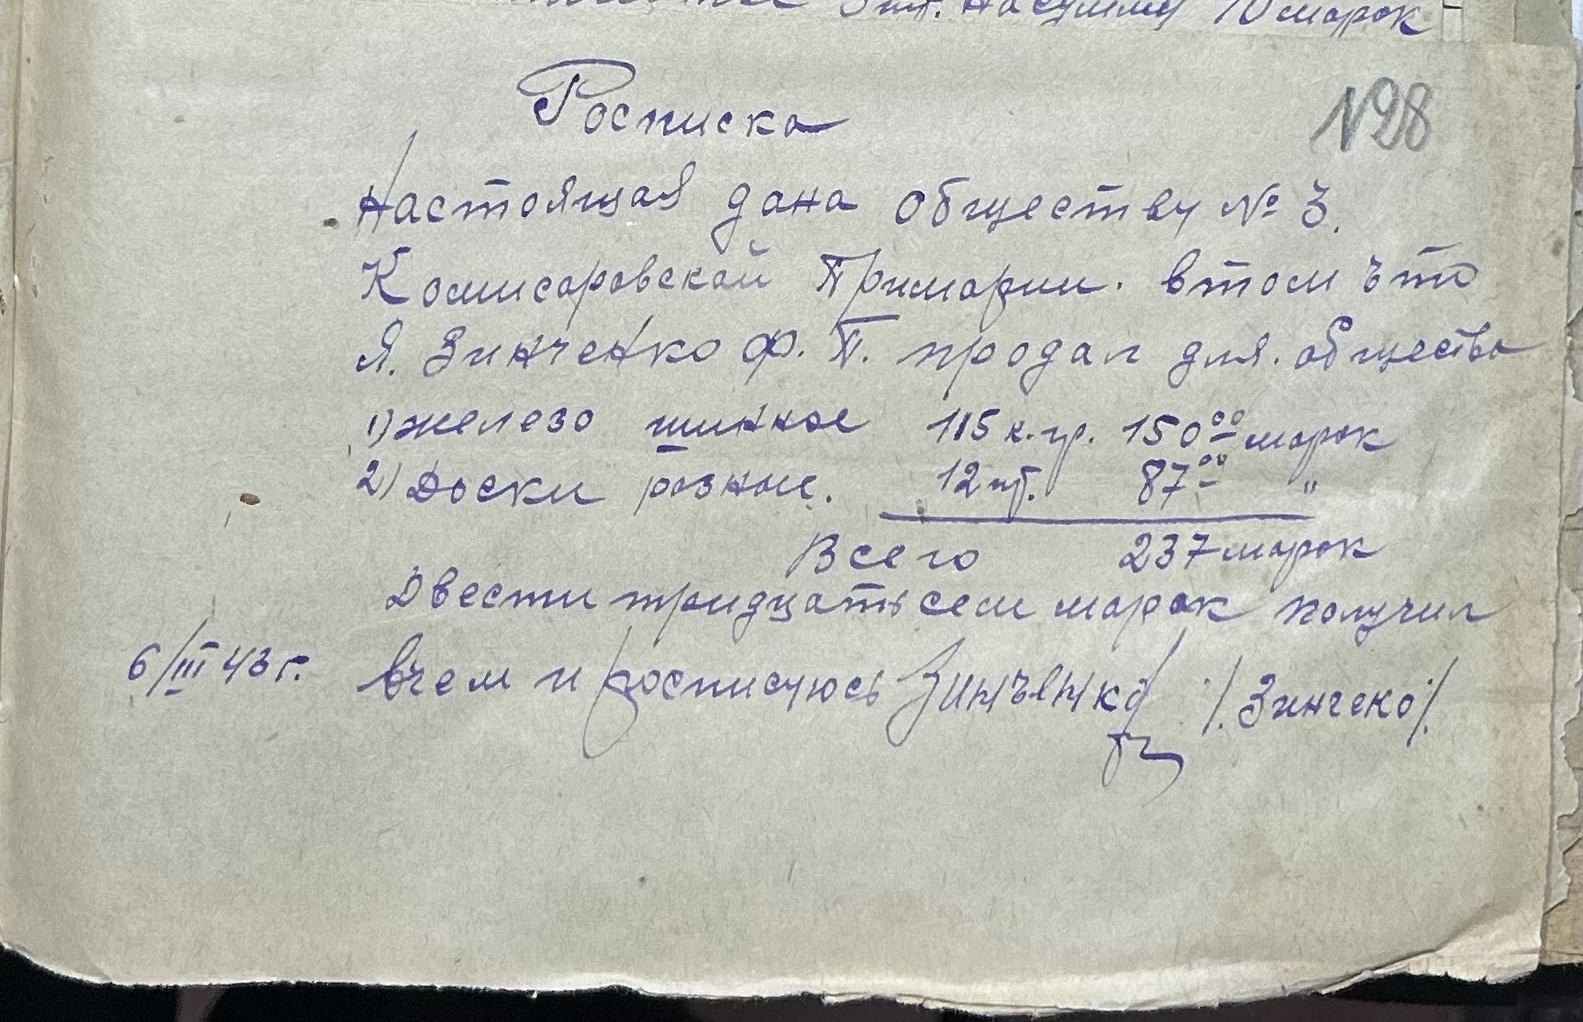 3 шт. На сумму 70 марок
Росписка
№28
Настоящая дана обществу № 3.
Комисаровской Примарии. втом что
Я. Зинченко Ф. П. продал для. общества
1) железо шинное 115 к.гр. 150 00 марок
2) Доски разные. 12 шт. 87 00 "
Всего 237 марок
Двести тридцать сем марок получил
6/III 43 г. вчем и росписуюсь Зинченко /. Зинчеко ./